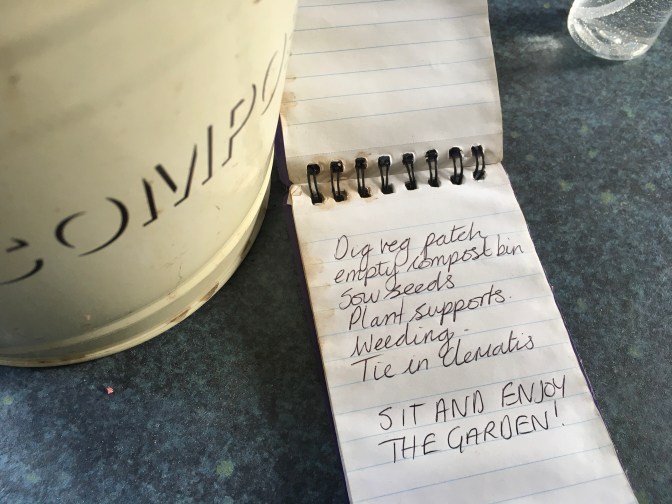 COMPO
Dig veg patch
empty compost bin
Sow seeds
Plant supports.
Weeding.
Tie in clematis
SIT AND ENJOY
THE GARDEN!